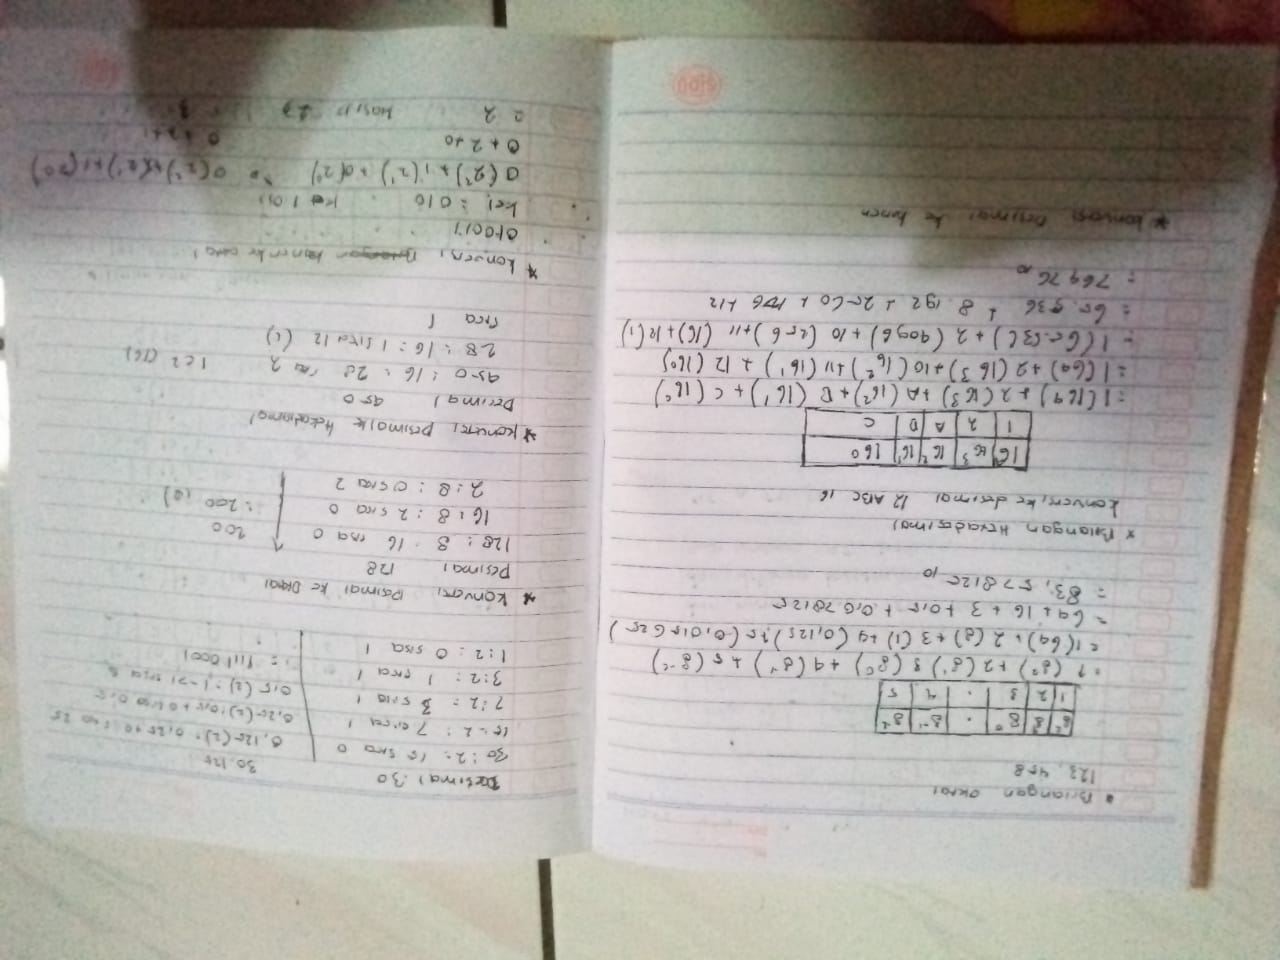 • Bilangan oktal
123,458
8² 8¹ 8⁰ . 8⁻¹ 8⁻²
1 2 3 . 4 5
= 1 (8²) + 2 (8¹) 3 (8⁰) + 4 (8⁻¹) + 5 (8⁻²)
= 1 (64) + 2 (8) + 3 (1) + 4 (0,125) 5 (0,015625)
= 64 + 16 + 3 + 0,5 + 0,078125
= 83,57812510
* Bilangan Hexadesimal
konversi ke desimal 12 ABC 16
16⁴ 16³ 16² 16¹ 160
1 2 A B C
= 1 (16⁴) + 2 (16³) + A (16²) + B (16¹) + C (16⁰)
= 1 (64) + 2 (16³) + 10 (16²) + 11 (16¹) + 12 (160)
= 1 (65.536) + 2 (4096) + 10 (256) + 11 (16) + 12 (1)
= 65.536 + 8.192 + 2560 + 176 + 12
= 7647610
* konversi desimal ke biner
Desimal 30
30 : 2 = 15 sisa 0
15 : 2 : 7 sisa 1
7 : 2 : 3 sisa 1
3 : 2 : 1 sisa 1
1 : 2 : 0 sisa 1
30.125
0,125 (2) = 0,25
0,25 (2) : 0,5
0,5 (2) : 1
* konversi Desimal ke Oktal
Desimal 128
128 : 8 16 sisa 0
16 : 8 : 2 sisa 0
2 : 8 : 0 sisa 2
200
= 200 (8)
* konversi Desimal ke Hekadesimal
Desimal 450
450 : 16 : 28 sisa 2 1c2 (16)
28 : 16 : 1 sisa 12 (c)
sisa 1
* konversi biner ke oktal
010011
ke1 = 010
0 (2²) + 1 (2¹) + 0 (2⁰)
0 + 2 + 0
= 2 Hasil 23